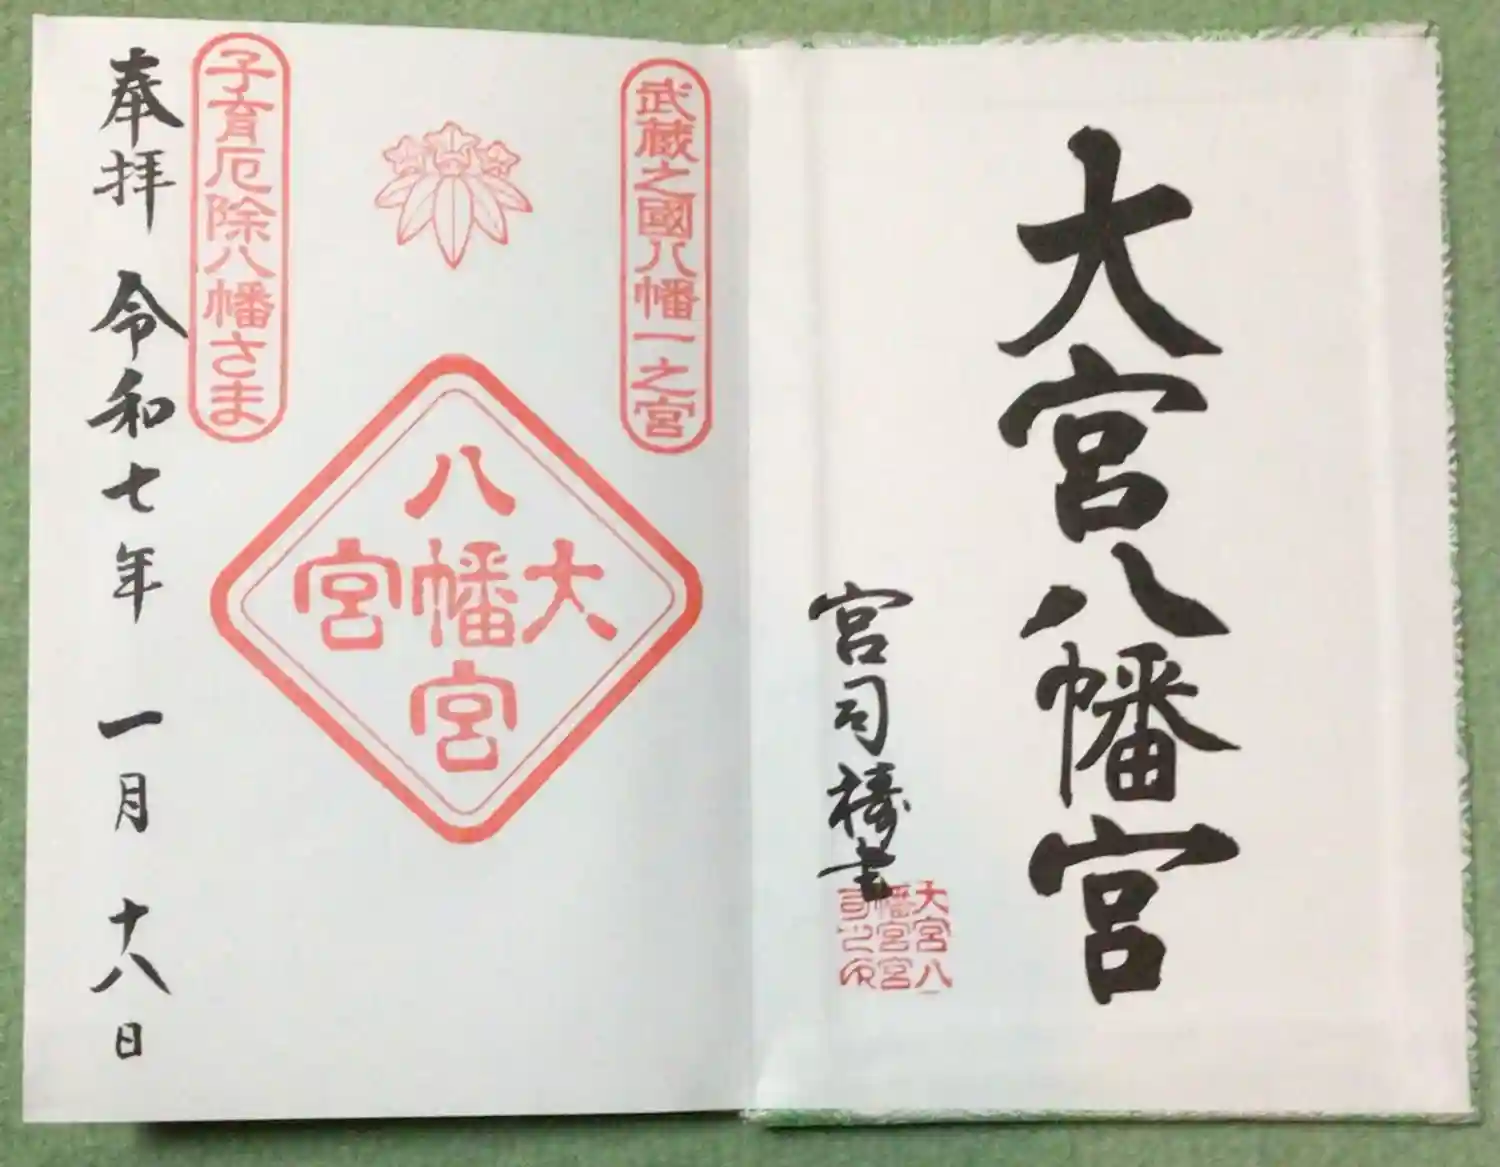 大宮八幡宮
宮司禱書
大宮八
幡宮宮
司之印
武蔵之國八幡一之宮
八
大幡宮
宮
子育厄除八幡さま
奉拝 令和七年 一月 十八日